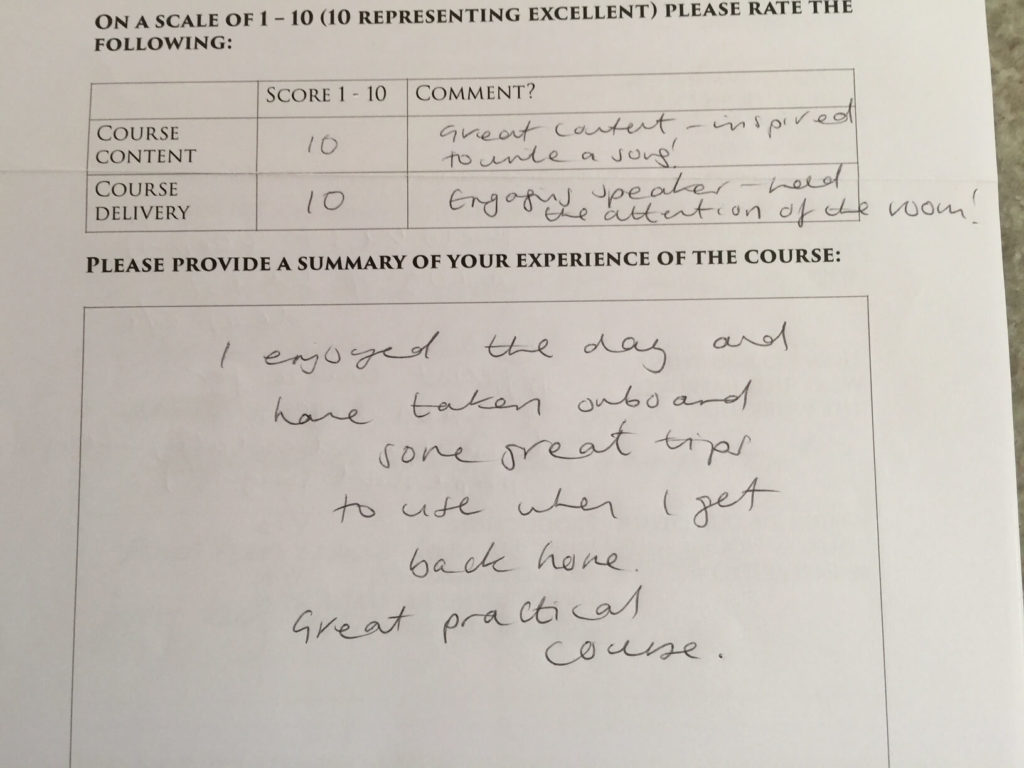 ON A SCALE OF 1 – 10 (10 REPRESENTING EXCELLENT) PLEASE RATE THE
FOLLOWING:
SCORE 1 - 10 COMMENT?
COURSE CONTENT 10 Great content - inspired
to write a song!
COURSE DELIVERY 10 Engaging speaker - held
the attention of the room!
PLEASE PROVIDE A SUMMARY OF YOUR EXPERIENCE OF THE COURSE:
I enjoyed the day and
have taken onboard
some great tips
to use when I get
back home.
Great practical
course.